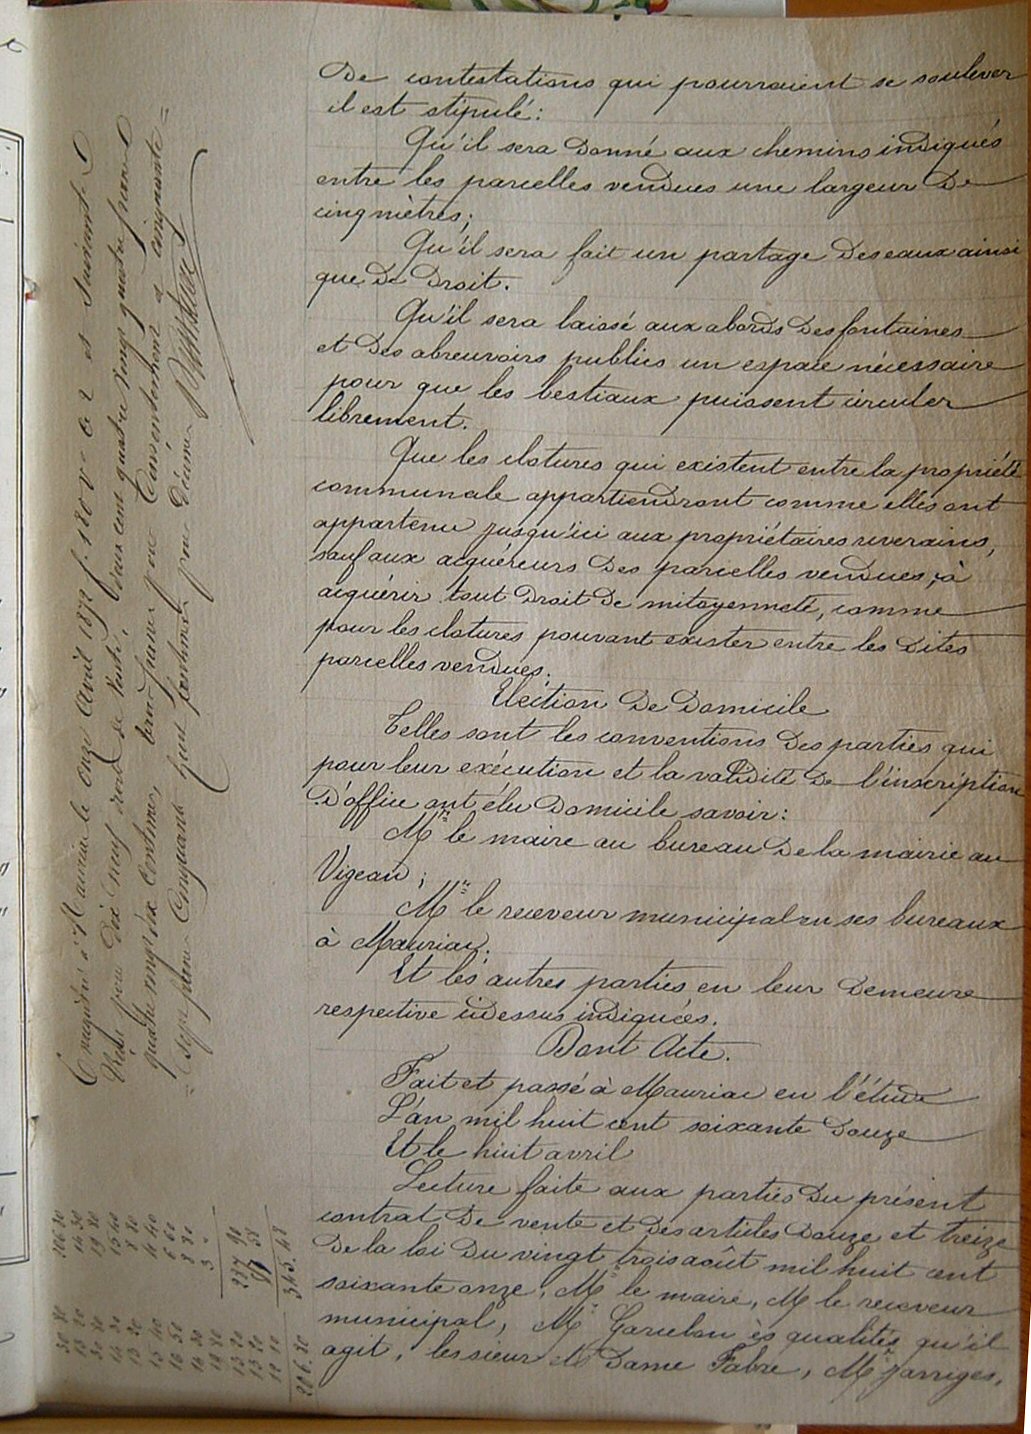 De contestations qui pourraient se soulever
il est stipulé:
Qu'il sera donné aux chemins indiqués
entre les parcelles vendues une largeur de
cinq mètres;
Qu'il sera fait un partage des eaux ainsi
que de droit.
Qu'il sera laissé aux abords des fontaines
et des abreuvoirs publics un espace nécessaire
pour que les bestiaux puissent circuler
librement.
Que les clotures qui existent entre la propriété
communale appartiendront comme elles ont
appartenu jusqu'ici aux propriétaires riverains,
sauf aux acquéreurs des parcelles vendues, à
acquérir tout droit de mitoyenneté, comme
pour les clotures pouvant exister entre les dites
parcelles vendues.
Election de Domicile
Telles sont les conventions des parties qui
pour leur exécution et la validité de l'inscription
d'office ont élu domicile savoir:
Mr le maire au bureau de la mairie au
Vigean;
Mr le receveur municipal en ses bureaux
à Mauriac;
Et les autres parties en leur demeure
respective cidessus indiquées.
Dont Acte.
Fait et passé à Mauriac en l'étude
L'an mil huit cent soixante douze
Et le huit avril
Lecture faite aux parties du présent
contrat de vente et des articles douze et treize
de la loi du vingt trois août mil huit cent
soixante onze, Mr le maire, M le receveur
municipal, Mr Garcelon ès qualités qu'il
agit, les sieur et Dame Fabre, Mr Jarriges,
Enregistré à Mauriac le onze avril 1872 f. 180 V° C 2 et suivants
Reçu pour dix neuf droits de vente, deux cent quatre vingt quatre francs
quatre vingt six centimes, trois francs pour
cinquante huit centimes pour décimes
206.20
14 30
19 80
15 40
8 80
4 40
6 60
8 80
3 "
345.48
206.20